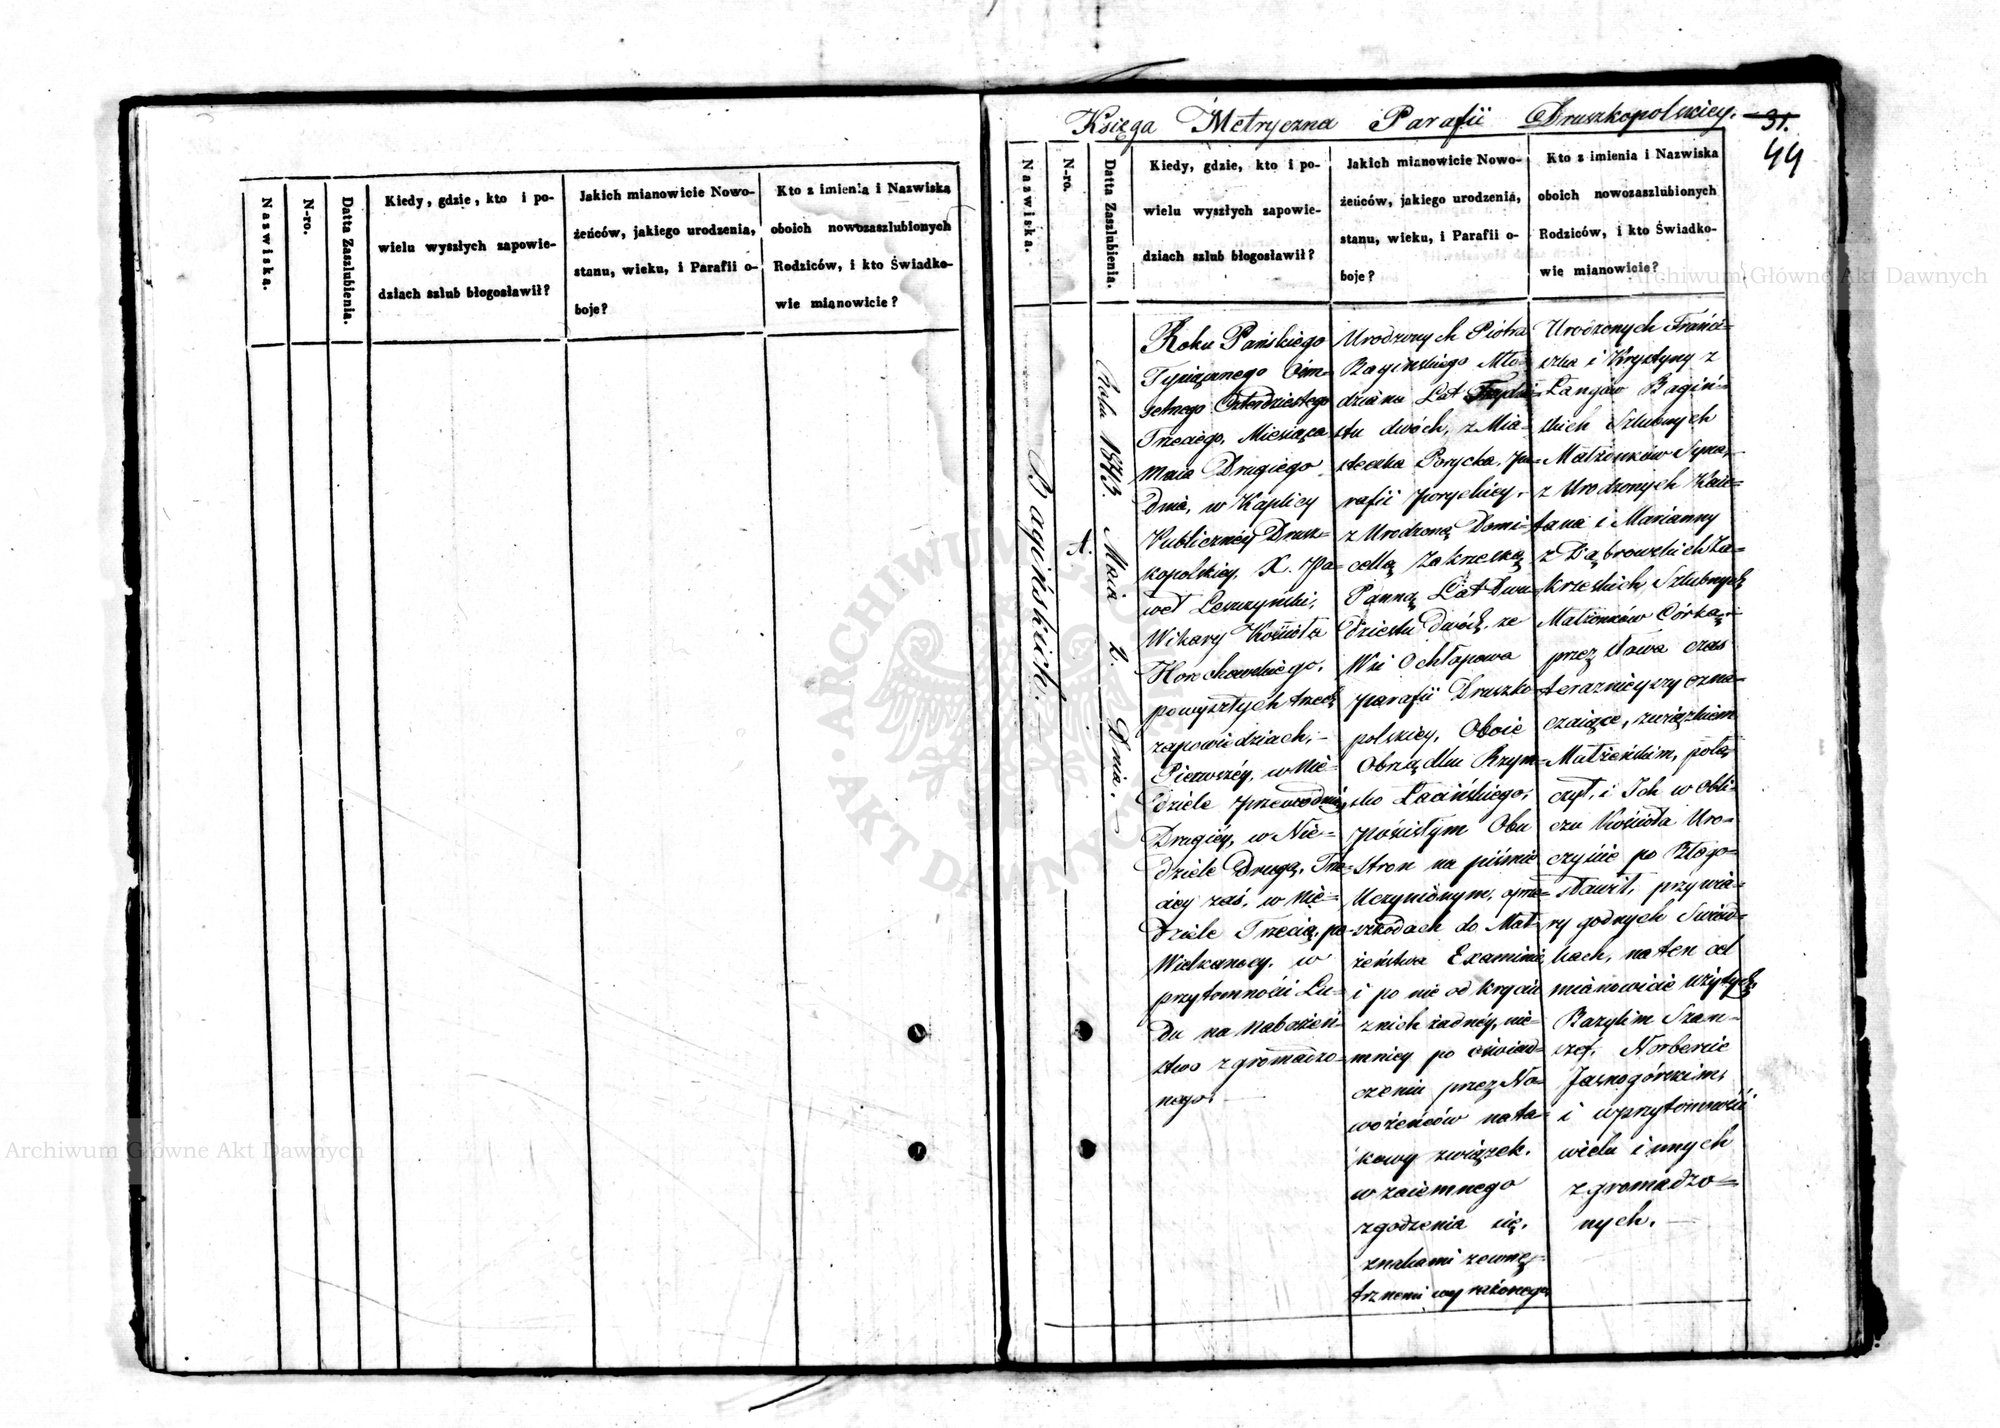 Nazwiska.
N-ro.
Datta Zaszlubienia.
Kiedy, gdzie, kto i po-
wielu wyszłych zapowie-
dziach szlub błogosławił?
Jakich mianowicie Nowo-
żeńców, jakiego urodzenia,
stanu, wieku, i Parafii o-
boje?
Kto z imienia i Nazwiska
oboich nowozaszlubionych
Rodziców, i kto Świadko-
wie mianowicie?
Księga Metryczna Parafii Druszkopolskiey.
31.
44
Nazwiska.
N-ro.
Datta Zaszlubienia.
Kiedy, gdzie, kto i po-
wielu wyszłych zapowie-
dziach szlub błogosławił?
Jakich mianowicie Nowo-
żeńców, jakiego urodzenia,
stanu, wieku, i Parafii o-
boje?
Kto z imienia i Nazwiska
oboich nowozaszlubionych
Rodziców, i kto Świadko-
wie mianowicie?
Bagińskich.
1.
Roku 1843. Maia 2. Dnia.
Roku Pańskiego
Tysiącznego Óśm=
setnego Czterdziestego
Trzeciego, Miesiąca
Maia Drugiego
Dnia, w Kaplicy
Publicznéy Drusz=
kopolskiey, X. Pa=
weł Leszczyński,
Wikary Kościoła
Horochowskiego,
powyszłych trzech
zapowiedziach,
Pierwszéy, w Nie=
dziele przewodnią,
Drugiéy, w Nie=
dziele Drugą, Trze=
ciey zaś, w Nie=
dziele Trzecią, po
Wielkanocy, w
przytomności Lu=
du na Nabożeń=
stwo zgromadzo=
nego.
Urodzonych Piotra
Bagińskiego Mło=
dziana Lat Trzydzie=
stu dwóch, z Mia=
steczka Porycka, pa=
rafii poryckiey,
z Urodzoną Domi=
cellą Zakrzeską
Panną Lat Dwu=
dziestu dwóch, ze
Wsi Ochłapowa
parafii Druszko=
polskiey, Oboie
Obrządku Rzym=
sko Łacińskiego,
pościsłym Obu
stron na piśmie
Uczynionym, oprze=
szkodach do Mał=
żeństwa Examinie,
i po nie odkryciu
znich żadnéy, nie=
mniey po oświad=
czeniu przez No=
wożeńców nata=
kowy związek,
wzaiemnego
zgodzenia się,
znakami zewnę=
trznemi wyrażonego,
Urodzonych Franci=
szka i Krystyny z
Langów Bagiń=
skich Szlubnych
Małżonków Syna,
z Urodzonych Kaie=
tana i Marianny
z Dąbrowskich Za=
krzeskich Szlubnych
Małżonków Córką,
przez słowa czas
teraznieyszy ozna=
czaiące, związkiem
Małżeńskim, połą=
czył, i Ich w Obli=
czu Kościoła Uro=
czyście po Błogo=
sławił, przy wia=
ry godnych Świad=
kach, na ten cel
mianowicie użytych,
Bazylim Szan=
Norbercie
Jasnogórskim,
i wprzytomności
wielu innych
zgromadzo=
nych.
Archiwum Główne Akt Dawnych
Archiwum Główne Akt Dawnych
ARCHIWUM GŁÓWNE AKT DAWNYCH